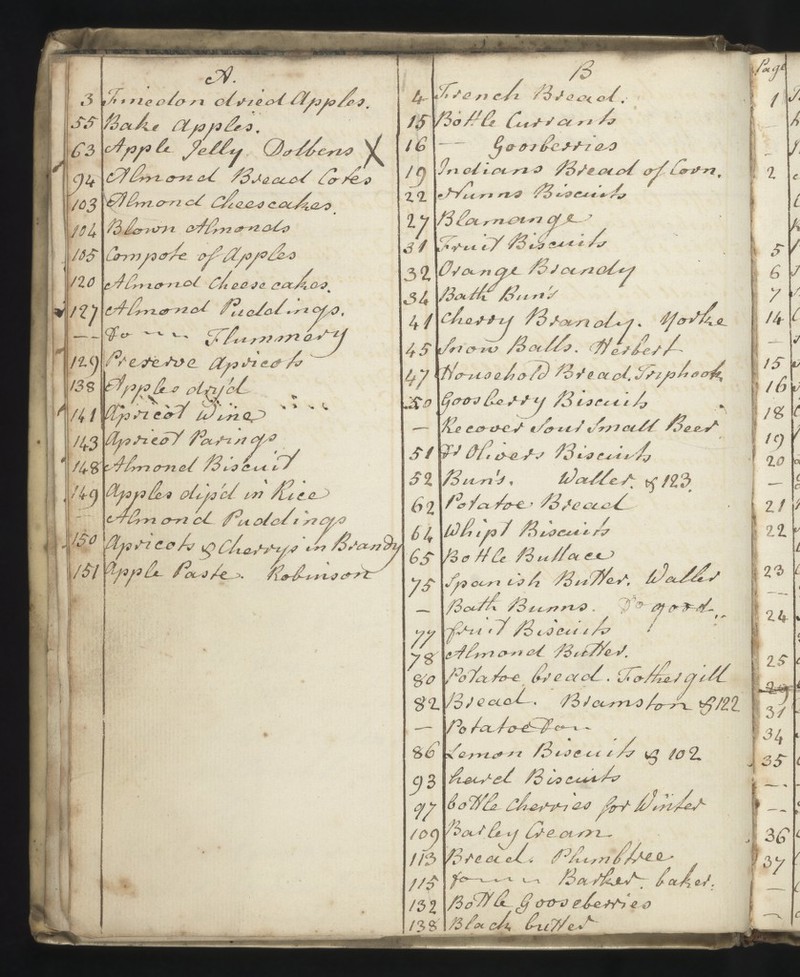 A.
3 Finedon dried Apples.
55 Bake Apples.
63 Apple Jelly Dolbens X
94 Almond Bread Cotes
103 Almond Cheesecakes.
104 Blown Almonds
105 Compote of Apples
120 Almond Cheese cakes.
127 Almond Puddings.
-- Do Flummery
129 Preserve Apricots
138 Apples dry'd
141 Apricot Wine
143 Apricot Parings
148 Almond Biscuit
149 Apples dip'd in Rice
Almond Puddings
150 Apricots & Cherrys in Brandy
151 Apple Paste. Robinson
B
4 French Bread.
15 Bottle Currants
16 — Goosberries
19 Indians Bread of Corn.
22 Nunns Biscuits
27 Blamange
31 Fruit Biscuits
32 Orange Brandy
34 Bath Bun's
41 Cherry Brandy. Yorke
45 Snow Balls. Herbert
47 Household Bread. Triphook
50 Goosberry Biscuits
— Recover Sour Small Beer
51 Dr Olivers Biscuits
52 Bun's. Waller. & 123
62 Potatoe Bread
64 Whipt Biscuits
65 Bottle Bullace
75 Spanish Butter. Waller
— Bath Bunns. Do good
77 fruit Biscuits
78 Almond Butter.
80 Potatoe bread. Fothergill
82 Bread. Bramston & 122
— Potatoe Do
86 Lemon Biscuits & 102
93 hard Biscuits
97 bottle Cherries for Winter
109 Barley Cream
113 Bread. Plumbtree
115 Do Barker. baker.
132 Bottle Gooseberries
138 Black butter
Page
1
2
5
6
7
14
15
16
18
19
20
21
22
23
24
25
29
31
34
35
36
37